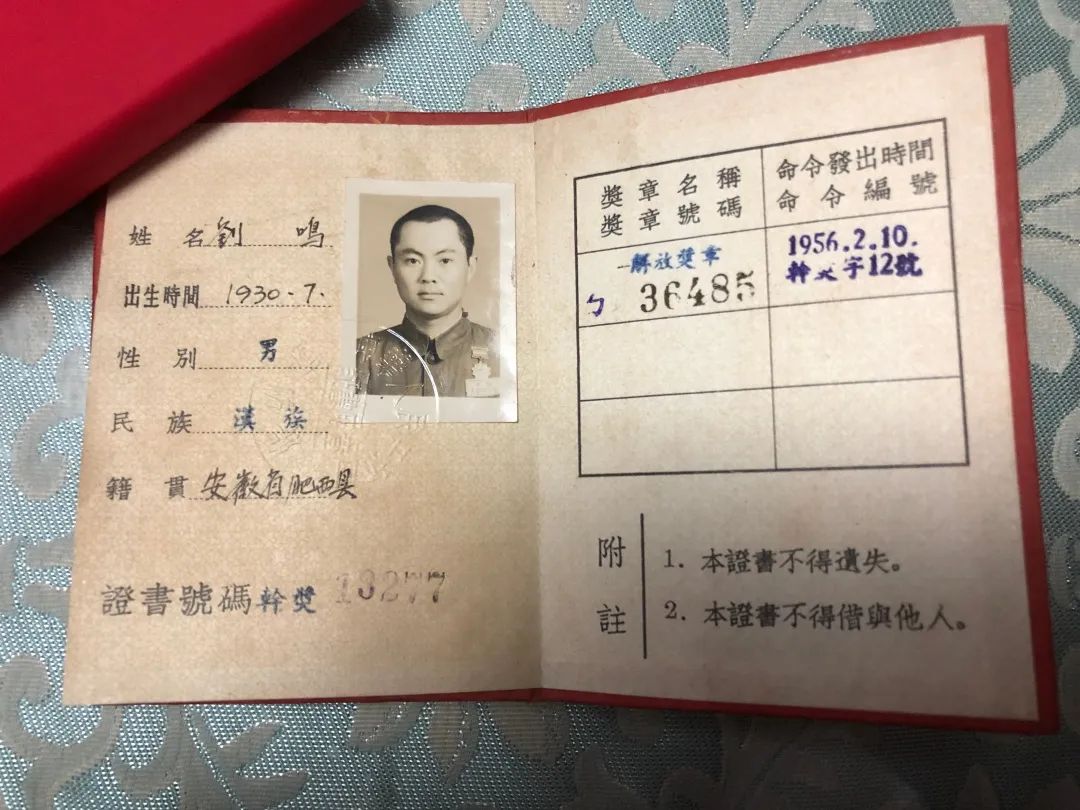 姓名 劉鳴
出生時間 1930-7.
性別 男
民族 漢族
籍貫 安徽省肥西县
證書號碼 幹獎 13277
獎章名稱
獎章號碼
命令發出時間
命令編號
一解放獎章
ㄅ 36485
1956.2.10.
幹獎字12號
附註
1. 本證書不得遺失。
2. 本證書不得借與他人。